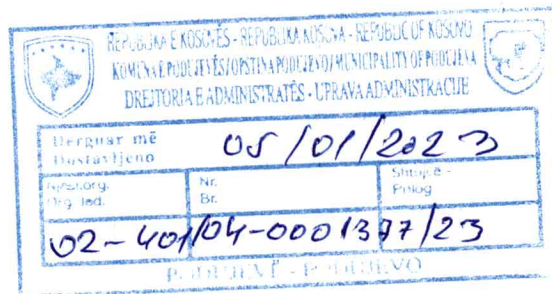 REPUBLIKA E KOSOVËS - REPUBLIKA KOSOVA - REPUBLIC OF KOSOVO
KOMUNA E PODUJEVËS / OPŠTINA PODUJEVO / MUNICIPALITY OF PODUJEVA
DREJTORIA E ADMINISTRATËS - UPRAVA ADMINISTRACIJE
Dërguar më
Dostavljeno
05/01/2023
Nr.
Br.
Shtojcë -
Prilog
Org. Jed.
02-401/04-0001377/23
PODUJEVË - PODUJEVO